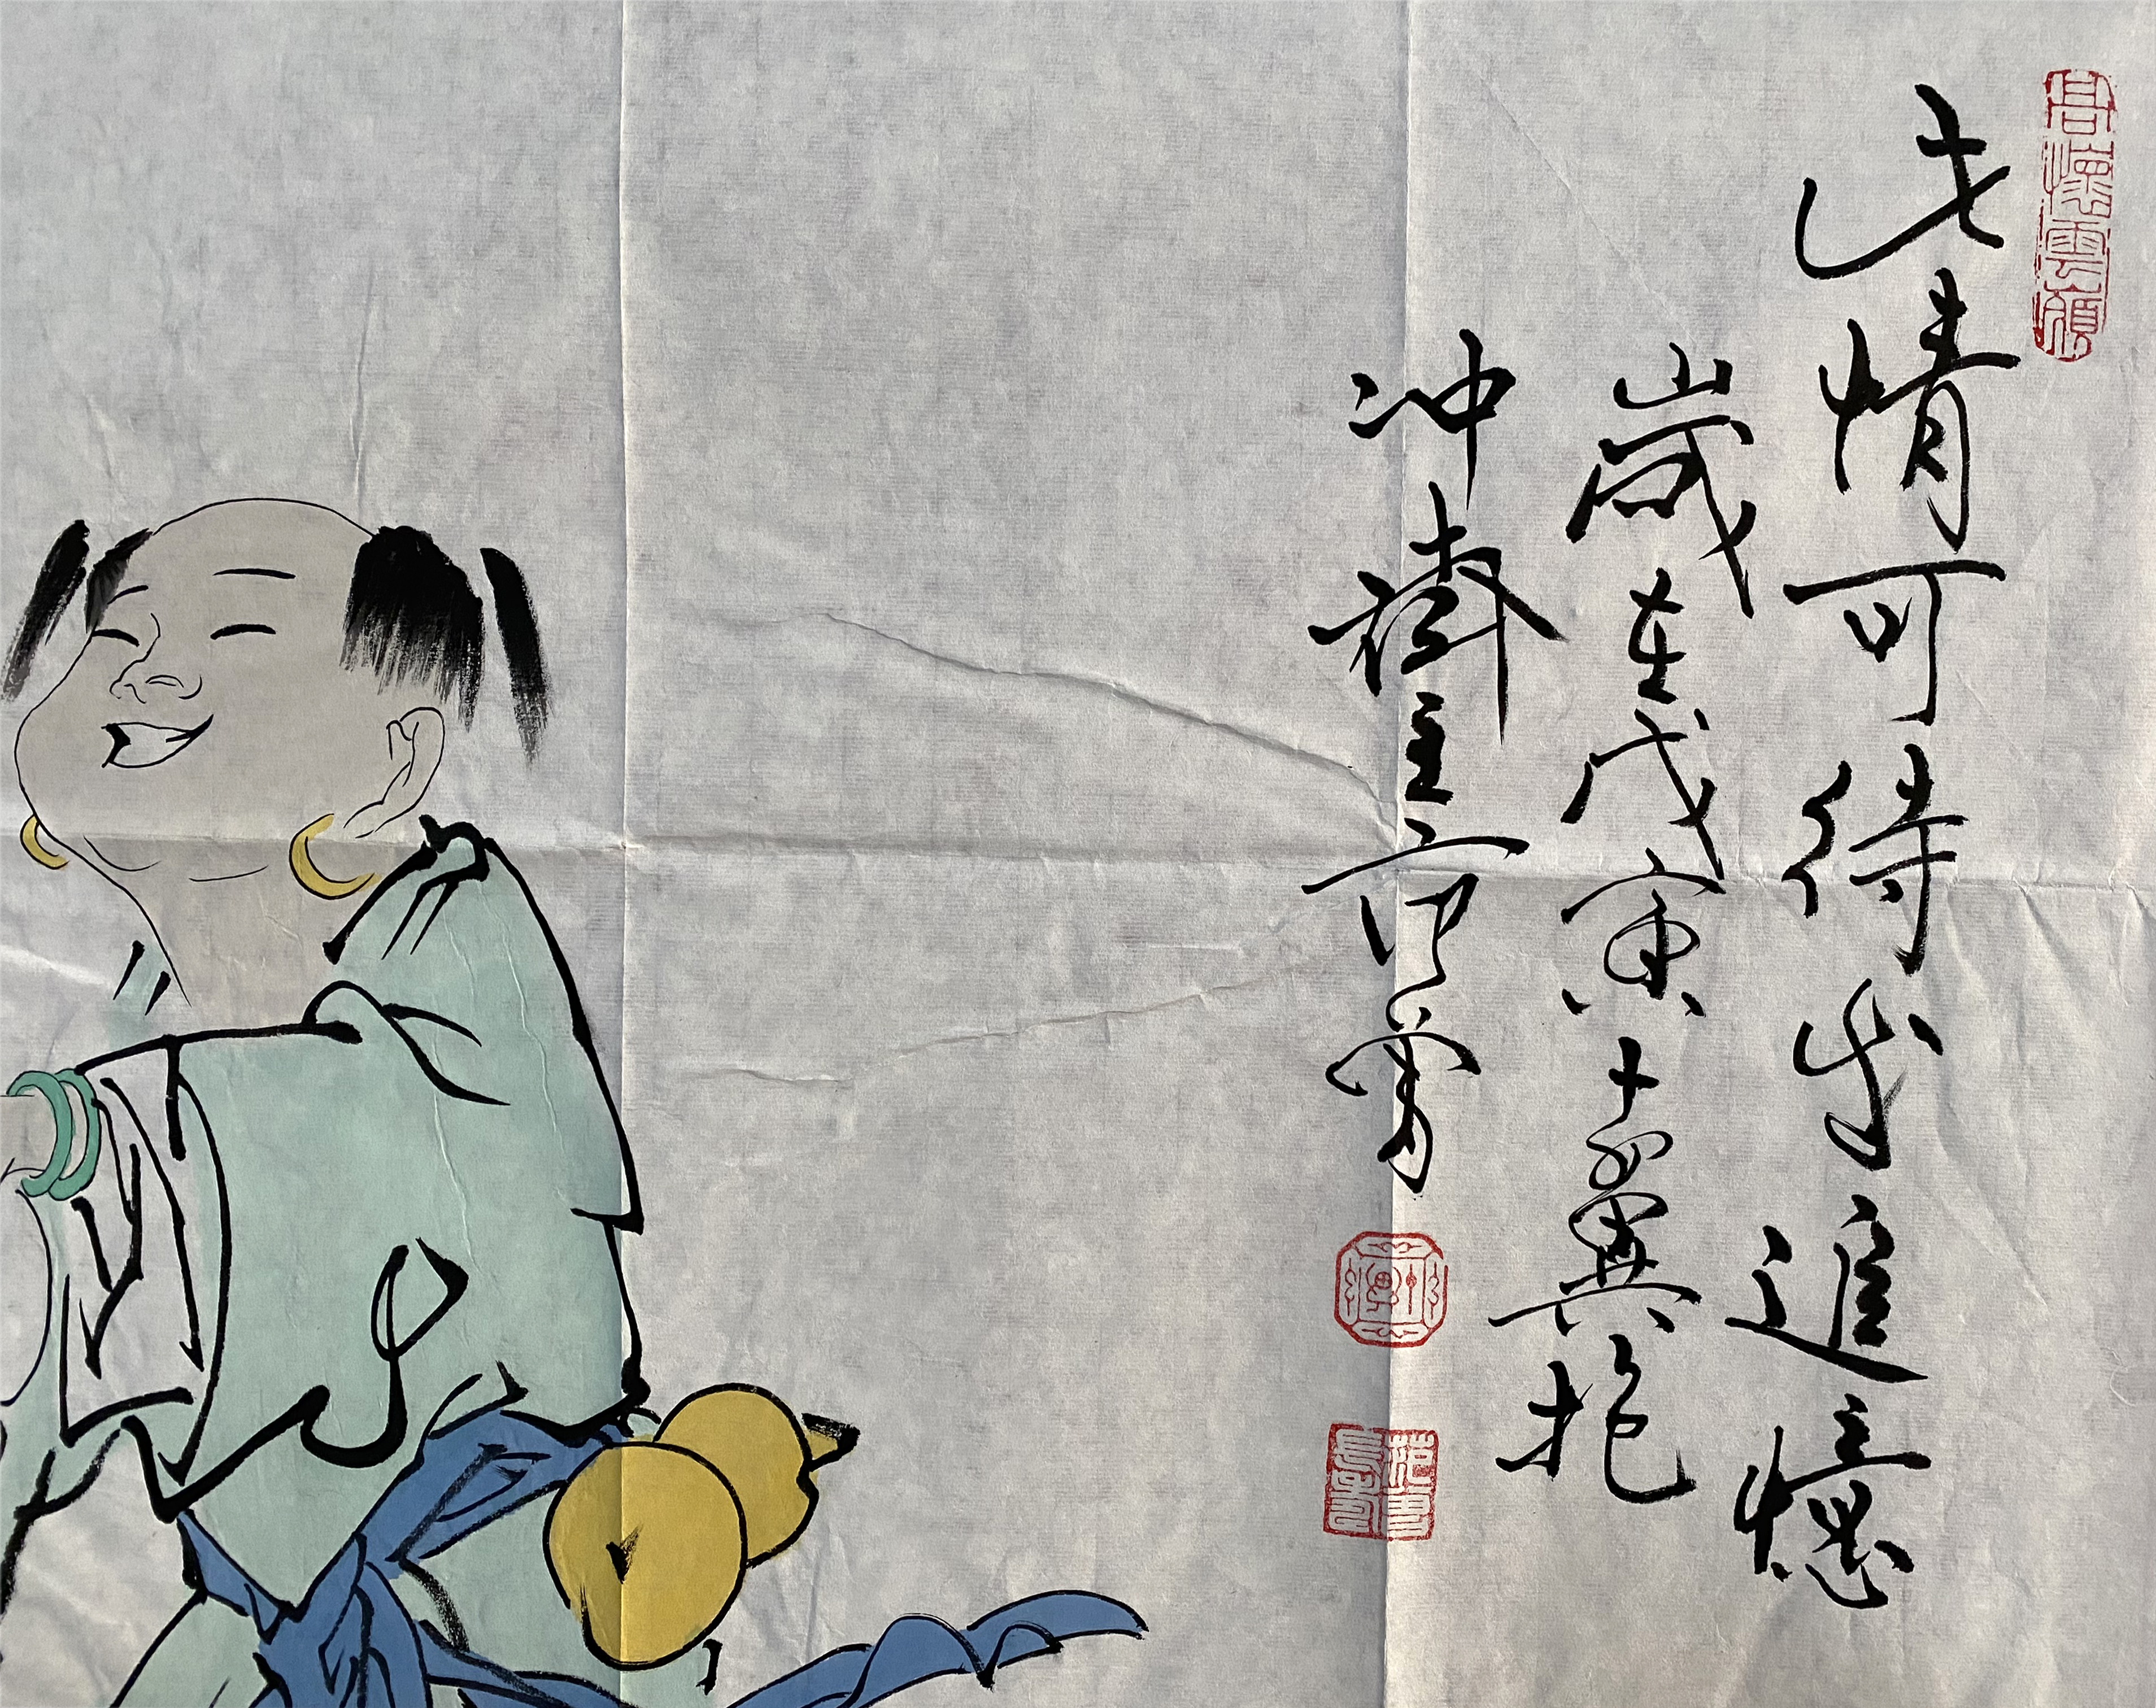 此情可待成追憶
歲在戊寅十翼抱
冲齋主范曾